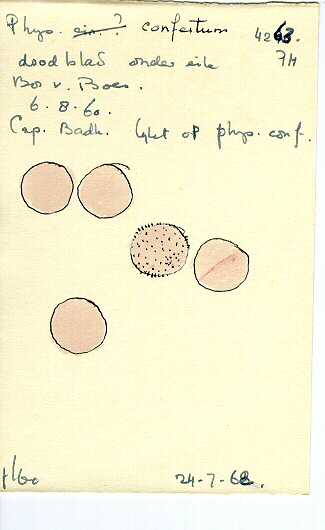 Phys. cin. ? confertum 4263.
dood blad onder eik 7H
Bos v. Boes.
6. 8. 60.
Cap. Badh. lykt op phys. conf.
24-7-62.